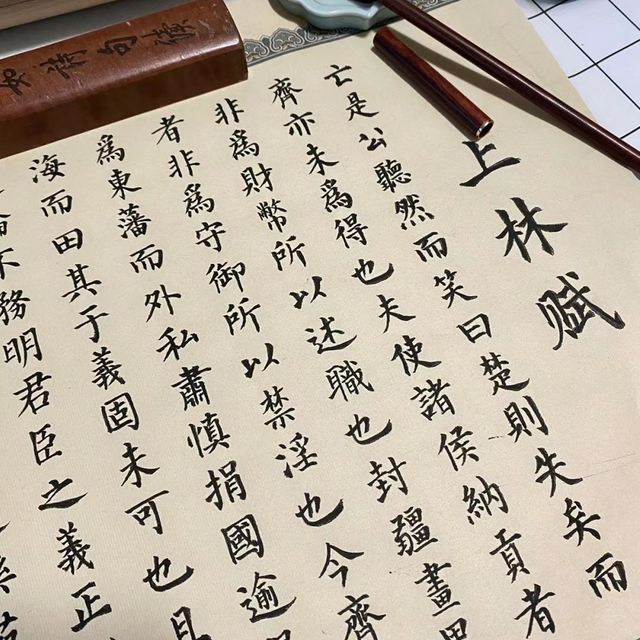 上林赋
亡是公聽然而笑曰楚則失矣而
齊亦未爲得也夫使諸侯納貢者
非爲財幣所以述職也封疆畫
者非爲守御所以禁淫也今齊
爲東藩而外私肅慎捐國逾
海而田其于義固未可也且
不務明君臣之義正